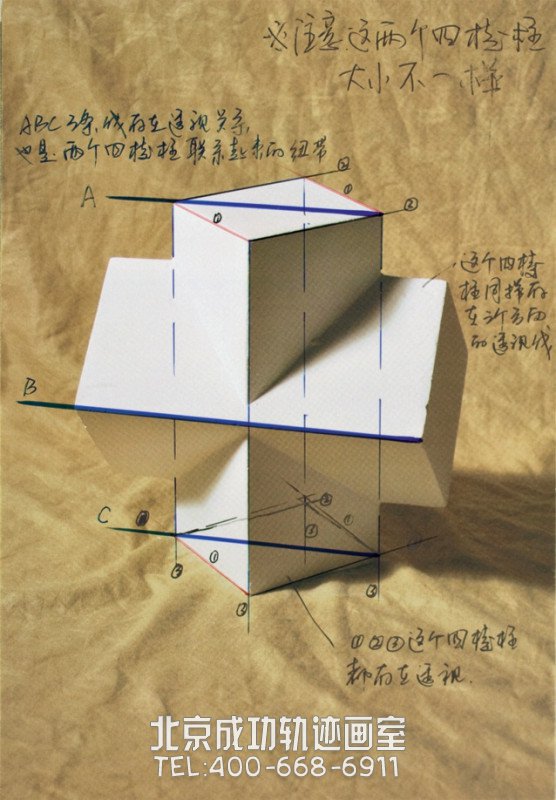 ※注意:这两个四棱柱
大小不一样
ABC 3条线存在透视关系,
也是两个四棱柱联系起来的纽带
A
①
①
②
②
这个四棱
柱同样存
在3个方向
的透视线
B
C
①
②
①
③
③
③
③
①②③这个四棱柱
都存在透视.
北京成功轨迹画室
TEL:400-668-6911